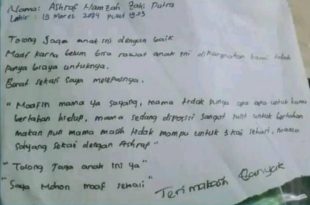 Nama: Ashraf Hamzah Zaki Putra
Lahir: 13 Maret 2024 Pukul 19.23
Tolong Jaga anak ini dengan baik
Maaf karna belum bisa rawat anak ini dikarnakan kami tidak
Punya biaya untuknya.
Berat sekali Saya melepasnya.
"Maafin mama ya sayang, mama tidak punya apa apa untuk kamu
bertahan hidup, mama sedang diposisi sangat sulit untuk bertahan
makan pun mama masih tidak mampu untuk 3 kali sehari, mama
sayang sekali dengan Ashraf"
"Tolong Jaga anak ini ya"
"Saya Mohon maaf sekali"
Terimakasih Banyak